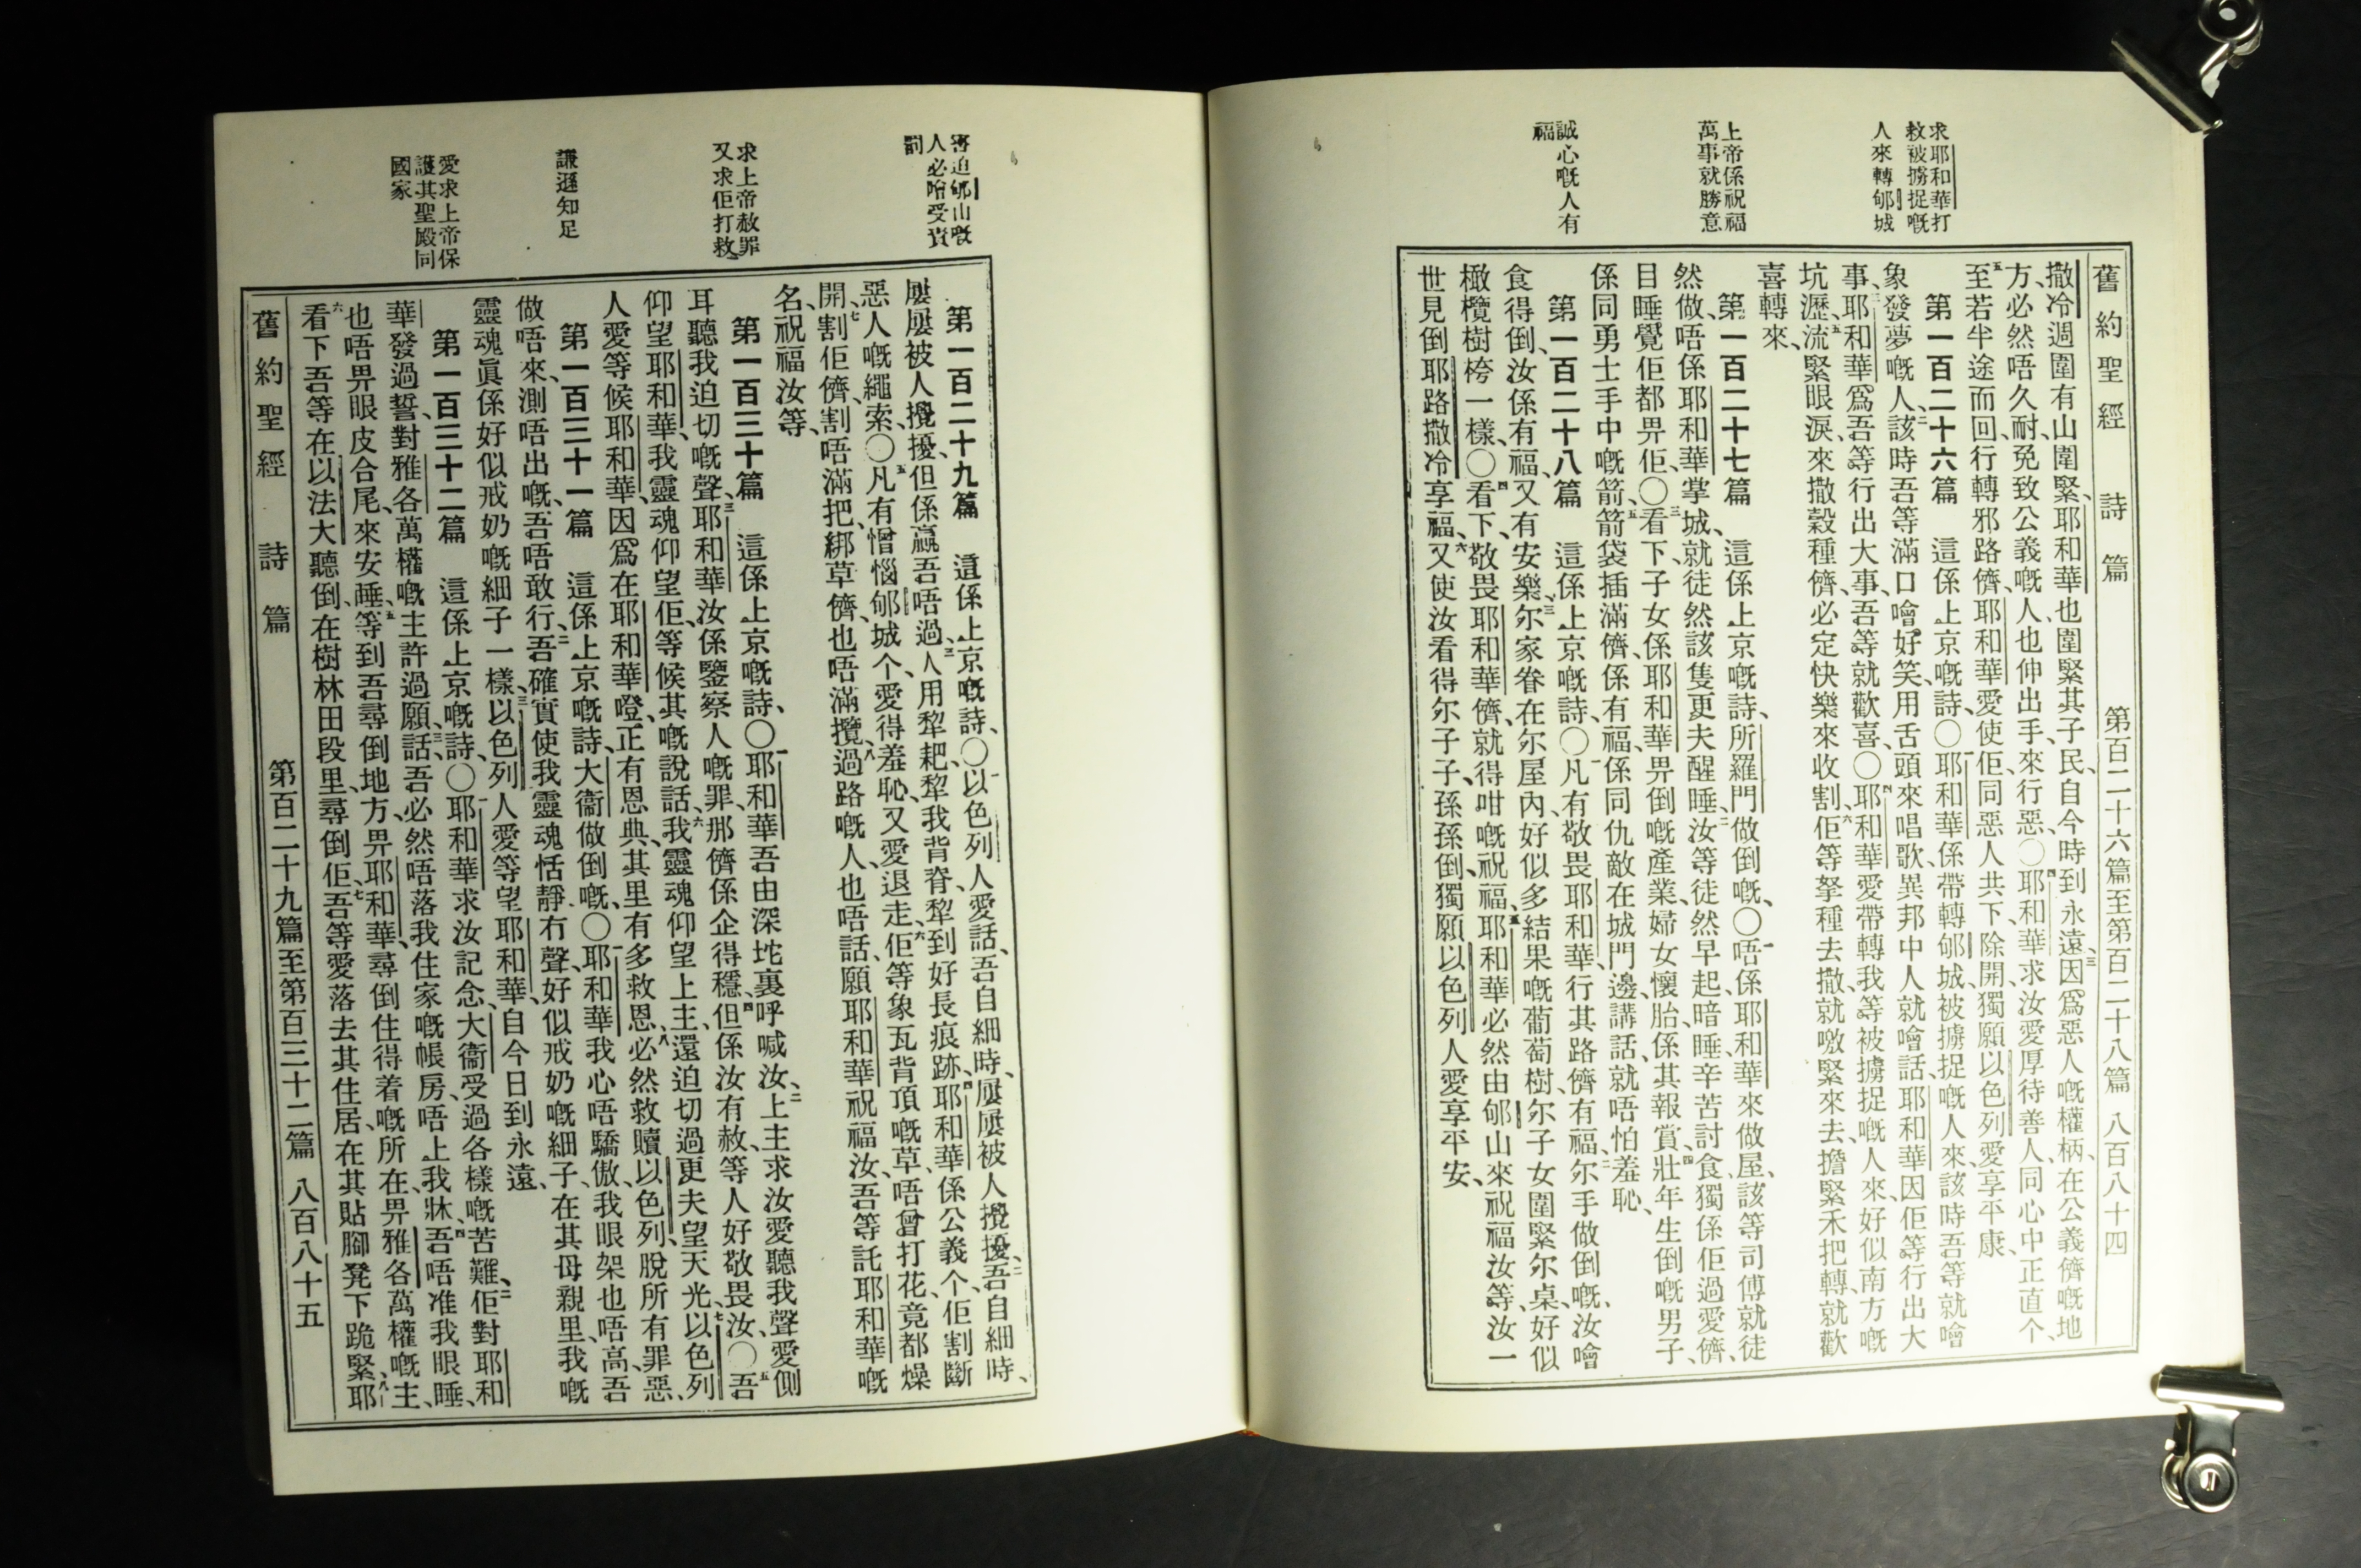 舊約聖經 詩篇 第百二十六篇至第百二十八篇 八百八十四
求耶和華打
救被擄捉嘅
人來轉郇城
上帝係祝福
萬事就勝意
誠心嘅人有
福
撒冷週圍有山圍緊、耶和華也圍緊其子民、自今時到永遠、三因爲惡人嘅權柄、在公義儕嘅地
方、必然唔久耐、免致公義嘅人、也伸出手、來行惡、○四耶和華求汝愛厚待善人、同心中正直个、
五至若半途而回、行轉邪路儕、耶和華愛使佢、同惡人共下除開、獨願以色列愛享平康、
第一百二十六篇 這係上京嘅詩、○一耶和華係帶轉郇城、被擄捉嘅人來、該時吾等就噲
象發夢嘅人、二該時吾等滿口噲好笑、用舌頭來唱歌、異邦中人就噲話、耶和華因佢等行出大
事、三耶和華爲吾等行出大事、吾等就歡喜、○四耶和華愛帶轉我等被擄捉嘅人來、好似南方嘅
坑瀝、五流緊眼淚、來撒穀種儕、必定快樂來收割、六佢等拏種去撒、就噭緊來去、擔緊禾把轉、就歡
喜轉來、
第一百二十七篇 這係上京嘅詩、所羅門做倒嘅、○一唔係耶和華來做屋、該等司傅就徒
然做、唔係耶和華掌城、就徒然該隻更夫醒睡、二汝等徒然早起暗睡、辛苦討食、獨係佢過愛儕、
目睡覺佢都畀佢、○三看下、子女係耶和華畀倒嘅產業、婦女懷胎、係其報賞、四壯年生倒嘅男子、
係同勇士手中嘅箭、五箭袋插滿儕、係有福、係同仇敵在城門邊講話、就唔怕羞恥、
第一百二十八篇 這係上京嘅詩、○一凡有敬畏耶和華、行其路儕有福、二尔手做倒嘅、汝噲
食得倒、汝係有福、又有安樂、三尔家眷在尔屋內、好似多結果嘅葡萄樹、尔子女圍緊尔桌、好似
橄欖樹桍一樣、○四看下、敬畏耶和華儕、就得咁嘅祝福、五耶和華必然由郇山來祝福汝等、汝一
世見倒耶路撒冷享福、六又使汝看得尔子子、孫孫倒、獨願以色列人愛享平安、
害迫郇山嘅
人必噲受責
罰
求上帝赦罪
又求佢打救
謙遜知足
愛求上帝保
護其聖殿同
國家
第一百二十九篇 這係上京嘅詩、○一以色列人愛話、吾自細時、屢屢被人攪擾、二吾自細時、
屢屢被人攪擾、但係贏吾唔過、三人用犂耙、犂我背脊、犂到好長痕跡、四耶和華係公義个、佢割斷
惡人嘅繩索、○五凡有憎惱郇城个、愛得羞恥、又愛退走、六佢等象瓦背頂嘅草、唔曾打花、竟都燥
開、七割佢儕、割唔滿把、綁草儕、也唔滿攬、八過路嘅人、也唔話、願耶和華祝福汝、吾等託耶和華嘅
名、祝福汝等、
第一百三十篇 這係上京嘅詩、○一耶和華吾由深坨裏呼喊汝、二上主求汝愛聽我聲、愛側
耳聽我迫切嘅聲、三耶和華、汝係鑒察人嘅罪、那儕係企得穩、四但係汝有赦、等人好敬畏汝、○五吾
仰望耶和華、我靈魂仰望佢、等候其嘅說話、六我靈魂仰望上主、還迫切過更夫望天光、七以色列
人愛等候耶和華、因爲在耶和華嶝、正有恩典、其里有多救恩、八必然救贖以色列、脫所有罪惡、
第一百三十一篇 這係上京嘅詩、大衞做倒嘅、○一耶和華、我心唔驕傲、我眼架也唔高、吾
做唔來、測唔出嘅、吾唔敢行、二吾確實使我靈魂恬靜冇聲、好似戒奶嘅細子、在其母親里、我嘅
靈魂眞係好似戒奶嘅細子一樣、三以色列人愛等望耶和華、自今日到永遠、
第一百三十二篇 這係上京嘅詩、○一耶和華求汝記念大衞、受過各樣嘅苦難、二佢對耶和
華發過誓、對雅各萬權嘅主許過願話、三吾必然唔落我住家嘅帳房、唔上我牀、四吾唔准我眼睡、
也唔畀眼皮合尾、來安睡、五等到吾尋倒地方、畀耶和華、尋倒住得着嘅所在、畀雅各萬權嘅主、
六看下吾等在以法大聽倒、在樹林田段里、尋倒佢、七吾等愛落去其住居、在其貼腳凳下跪緊、八耶
舊約聖經 詩篇 第百二十九篇至第百三十二篇 八百八十五